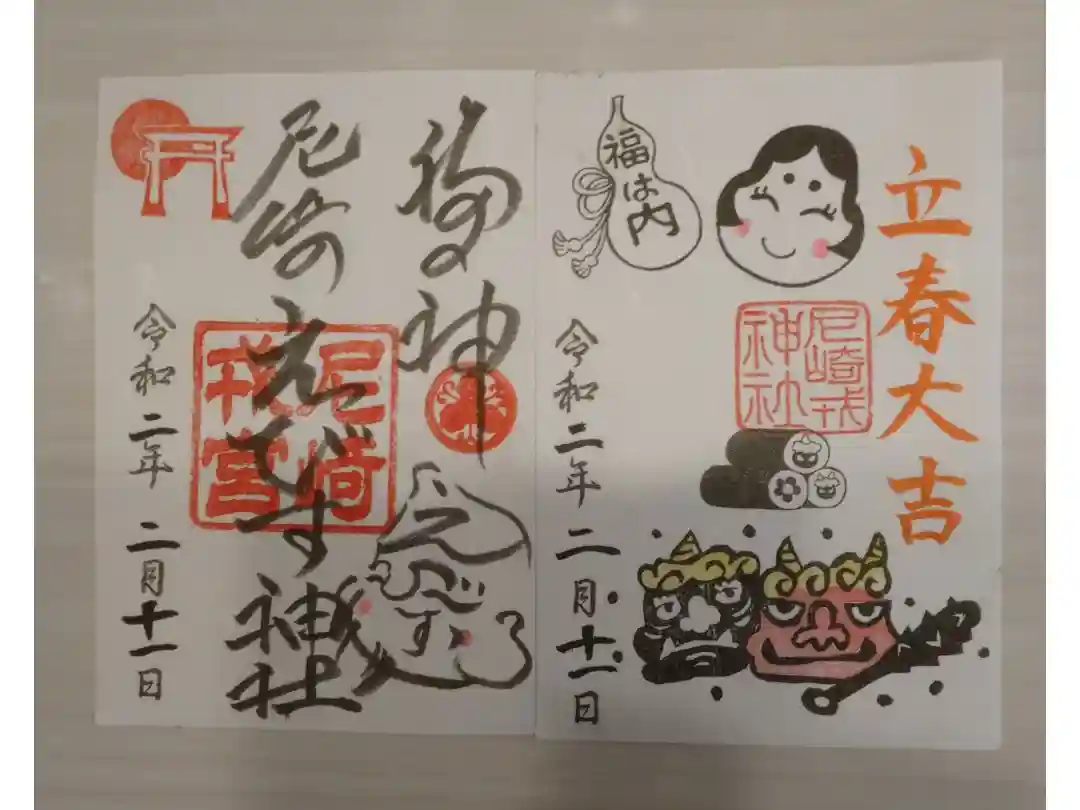 立春大吉
福は内
尼崎戎
神社
令和二年 二月十一日
福の神
尼崎えびす神社
尼崎
戎宮
えびす
令和二年 二月十一日